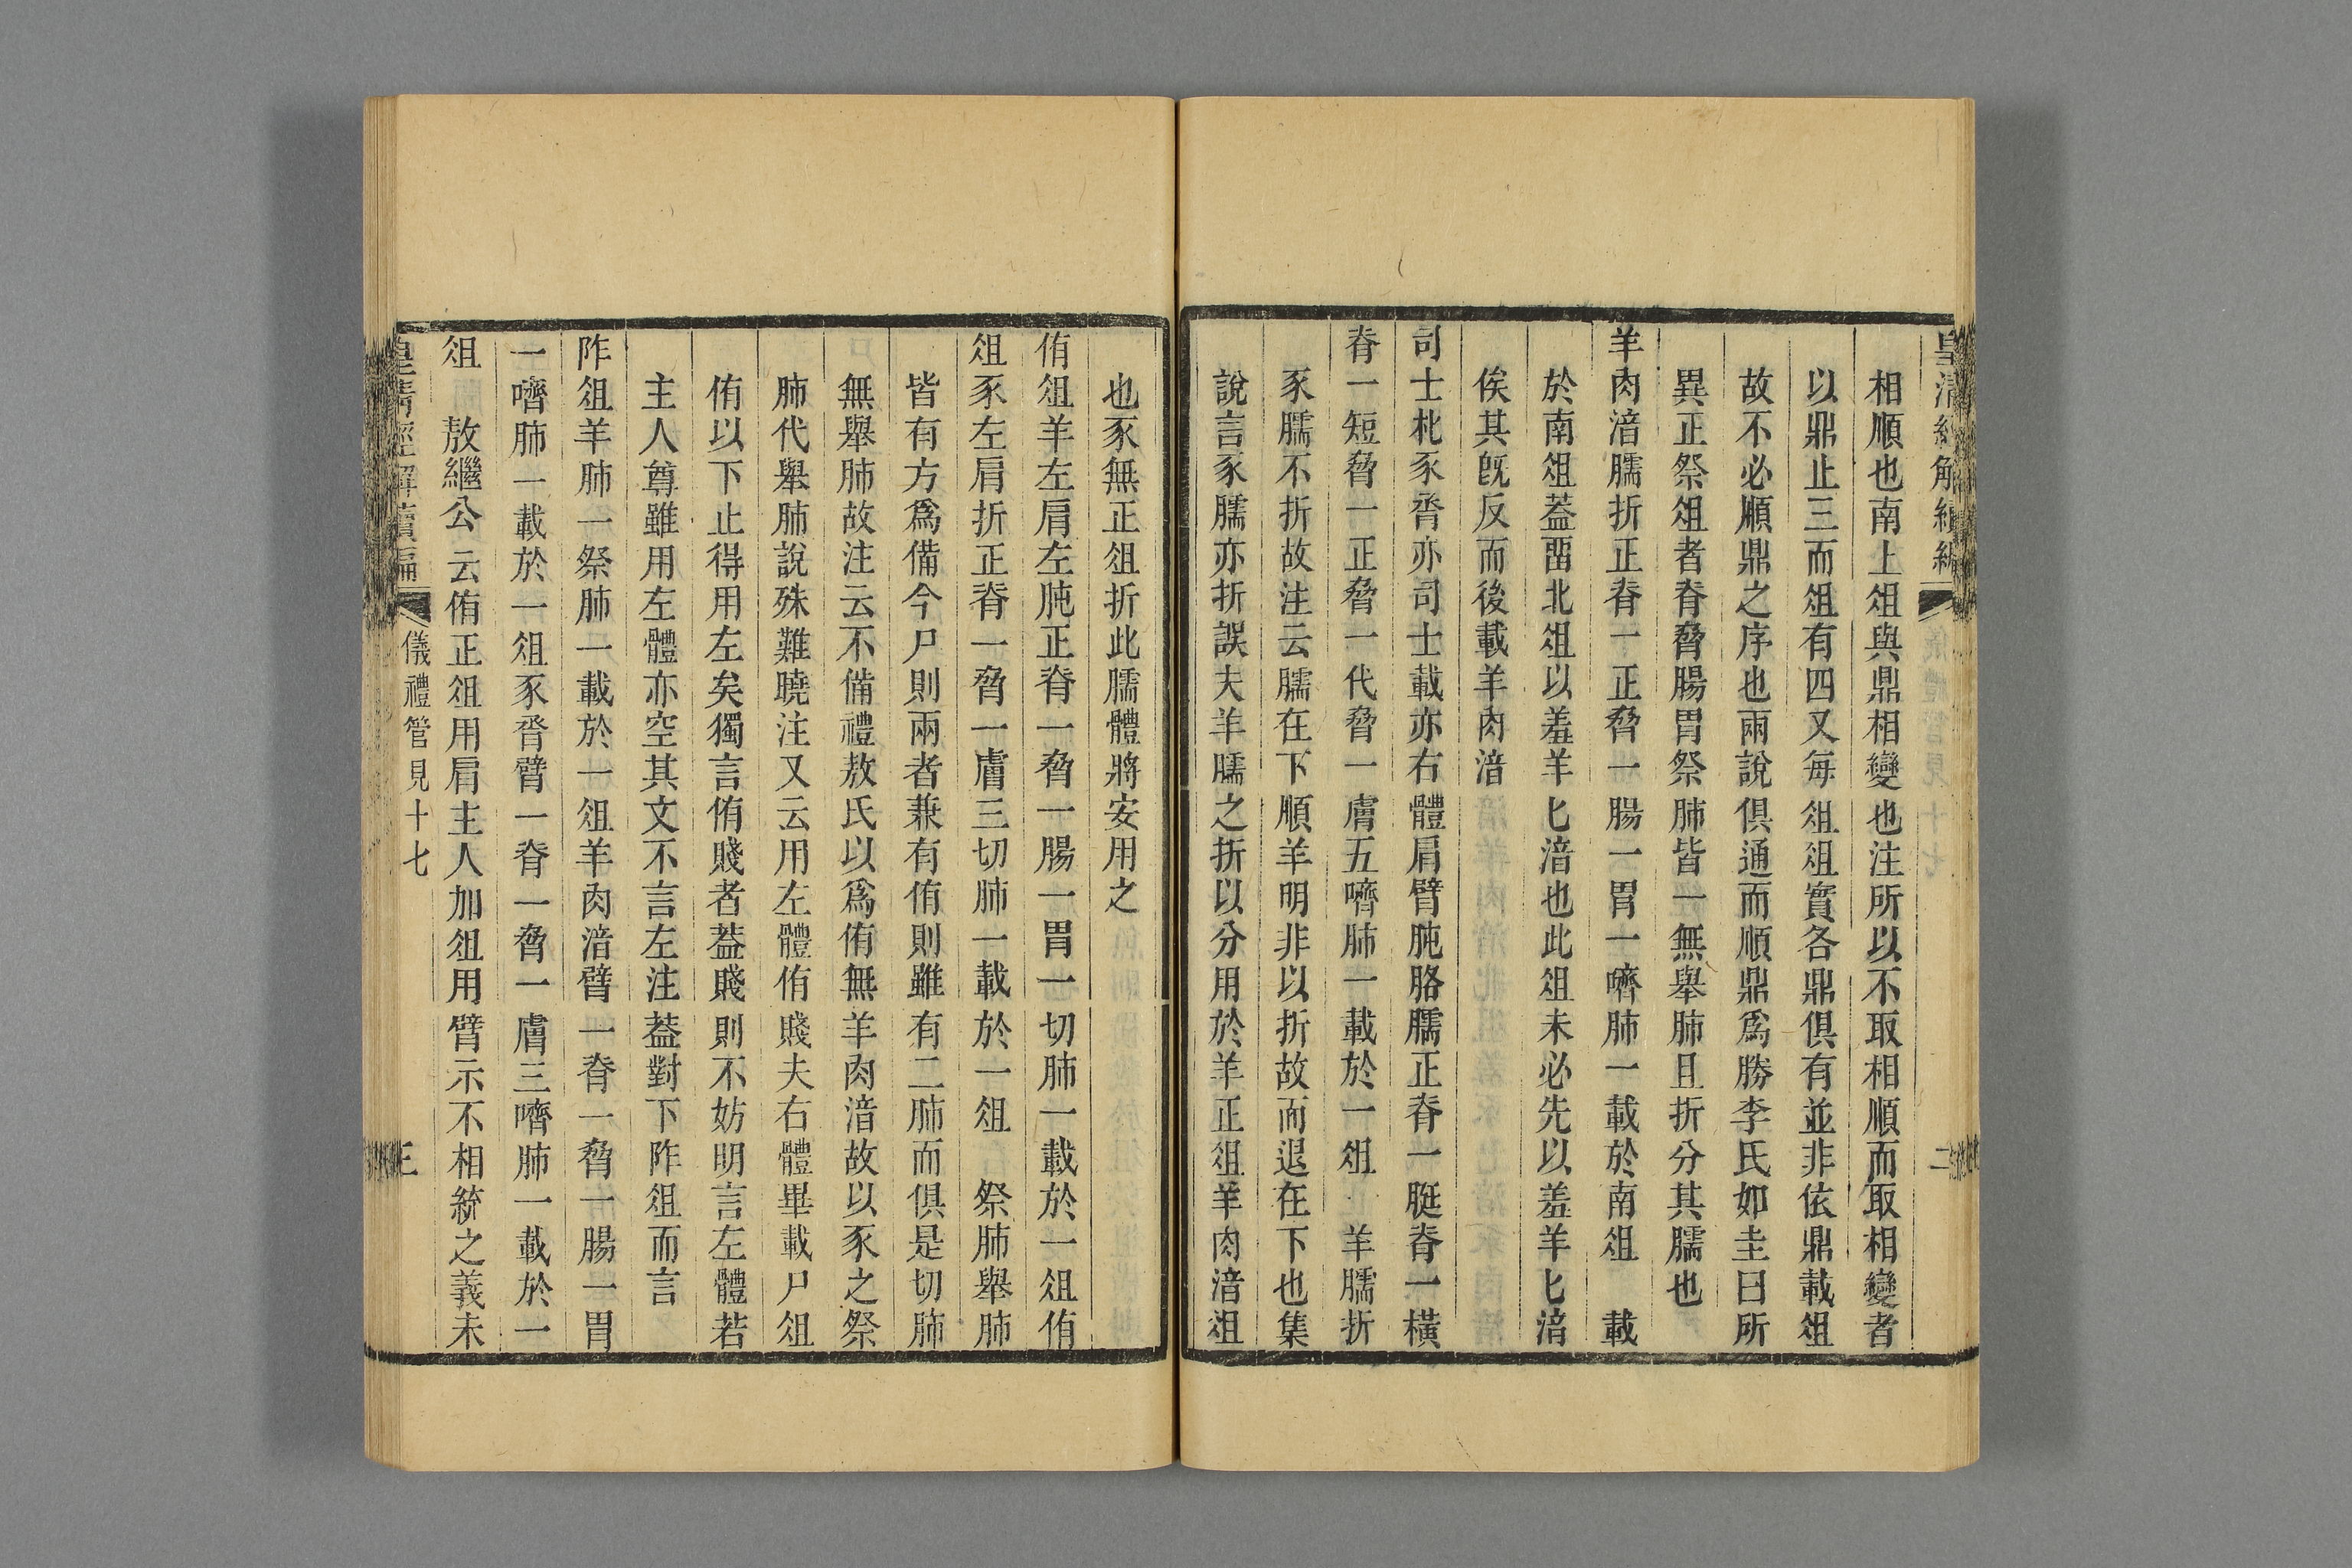 皇清經解續編
二
相順也南上俎與鼎相變也注所以不取相順而取相變者
以鼎止三而俎有四又每俎俎實各鼎俱有並非依鼎載俎
故不必順鼎之序也兩說俱通而順鼎爲勝李氏如圭曰所
異正祭俎者脊脅腸胃祭肺皆一無舉肺且折分其臑也
羊肉湆臑折正脊一正脅一腸一胃一嚌肺一載於南俎　載
於南俎葢畱北俎以羞羊匕湆也此俎未必先以羞羊匕湆
俟其旣反而後載羊肉湆
司士朼豕脀亦司士載亦右體肩臂肫胳臑正脊一脡脊一橫
脊一短脅一正脅一代脅一膚五嚌肺一載於一俎　羊臑折
豕臑不折故注云臑在下順羊明非以折故而退在下也集
說言豕臑亦折誤夫羊臑之折以分用於羊正俎羊肉湆俎
也豕無正俎折此臑體將安用之
侑俎羊左肩左肫正脊一脅一腸一胃一切肺一載於一俎侑
俎豕左肩折正脊一脅一膚三切肺一載於一俎　祭肺舉肺
皆有方爲備今尸則兩者兼有侑則雖有二肺而俱是切肺
無舉肺故注云不備禮敖氏以爲侑無羊肉湆故以豕之祭
肺代舉肺說殊難曉注又云用左體侑賤夫右體畢載尸俎
侑以下止得用左矣獨言侑賤者葢賤則不妨明言左體若
主人尊雖用左體亦空其文不言左注葢對下阼俎而言
阼俎羊肺一祭肺一載於一俎羊肉湆臂一脊一脅一腸一胃
一嚌肺一載於一俎豕脀臂一脊一脅一膚三嚌肺一載於一
俎　敖繼公云侑正俎用肩主人加俎用臂示不相統之義未
皇清經解續編
儀禮管見十七
三